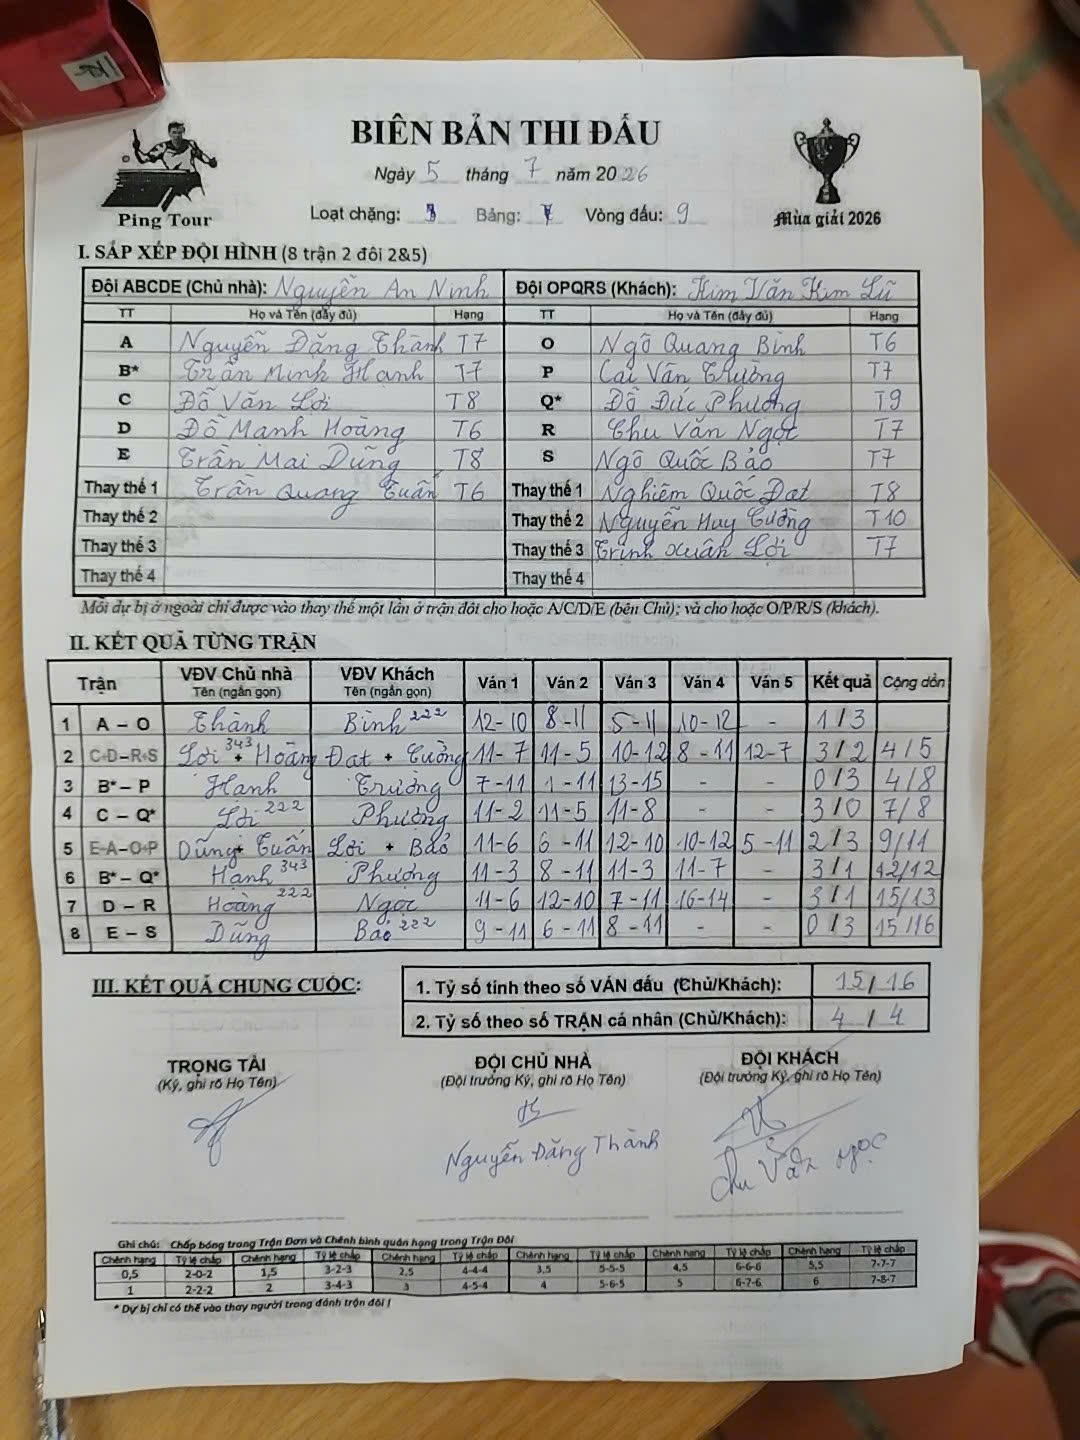 BIÊN BẢN THI ĐẤU
Ping Tour
Ngày 5 tháng 7 năm 2026
Mùa giải 2026
Loạt chặng: Bảng: Vòng đấu: 9
I. SẮP XẾP ĐỘI HÌNH (8 trận 2 đôi 2&5)
Đội ABCDE (Chủ nhà): Nguyễn An Ninh Đội OPQRS (Khách): Kim Văn Kim Lũ
TT Họ và Tên (đầy đủ) Hạng TT Họ và Tên (đầy đủ) Hạng
A Nguyễn Đặng Thành T7 O Ngô Quang Bình T6
B* Trần Minh Hạnh T7 P Cai Văn Trường T7
C Đỗ Văn Lợi T8 Q* Đỗ Đức Phương T9
D Đỗ Mạnh Hoàng T6 R Chu Văn Ngọc T7
E Trần Mai Dũng T8 S Ngô Quốc Bảo T7
Thay thế 1 Trần Quang Tuấn T6 Thay thế 1 Nghiêm Quốc Đạt T8
Thay thế 2 Thay thế 2 Nguyễn Huy Cường T10
Thay thế 3 Thay thế 3 Trịnh Xuân Lợi T7
Thay thế 4 Thay thế 4
Mỗi dự bị ở ngoài chỉ được vào thay thế một lần ở trận đôi cho hoặc A/C/D/E (bên Chủ); và cho hoặc O/P/R/S (khách).
II. KẾT QUẢ TỪNG TRẬN
Trận VĐV Chủ nhà Tên (ngắn gọn) VĐV Khách Tên (ngắn gọn) Ván 1 Ván 2 Ván 3 Ván 4 Ván 5 Kết quả Cộng dồn
1 A – O Thành Bình 222 12-10 8-11 5-11 10-12 - 1/3
2 C+D–R+S Lợi 343 + Hoàng Đạt + Cường 11-7 11-5 10-12 8-11 12-7 3/2 4/5
3 B* – P Hạnh Trường 7-11 1-11 13-15 - - 0/3 4/8
4 C – Q* Lợi 222 Phương 11-2 11-5 11-8 - - 3/0 7/8
5 E+A–O+P Dũng + Tuấn Lợi + Bảo 11-6 6-11 12-10 10-12 5-11 2/3 9/11
6 B* – Q* Hạnh 343 Phượng 11-3 8-11 11-3 11-7 - 3/1 12/12
7 D – R Hoàng 222 Ngọc 11-6 12-10 7-11 16-14 - 3/1 15/13
8 E – S Dũng Bảo 222 9-11 6-11 8-11 - - 0/3 15/16
III. KẾT QUẢ CHUNG CUỘC:
1. Tỷ số tính theo số VÁN đấu (Chủ/Khách): 15/16
2. Tỷ số theo số TRẬN cá nhân (Chủ/Khách): 4/4
TRỌNG TÀI ĐỘI CHỦ NHÀ ĐỘI KHÁCH
(Ký, ghi rõ Họ Tên) (Đội trưởng Ký, ghi rõ Họ Tên) (Đội trưởng Ký, ghi rõ Họ Tên)
Nguyễn Đặng Thành Chu Văn Ngọc
Ghi chú: Chấp bóng trong Trận Đơn và Chênh bình quân hạng trong Trận Đôi
Chênh hạng Tỷ lệ chấp Chênh hạng Tỷ lệ chấp Chênh hạng Tỷ lệ chấp Chênh hạng Tỷ lệ chấp Chênh hạng Tỷ lệ chấp Chênh hạng Tỷ lệ chấp
0,5 2-0-2 1,5 3-2-3 2,5 4-4-4 3,5 5-5-5 4,5 6-6-6 5,5 7-7-7
1 2-2-2 2 3-4-3 3 4-5-4 4 5-6-5 5 6-7-6 6 7-8-7
* Dự bị chỉ có thể vào thay người trong đánh trận đôi !